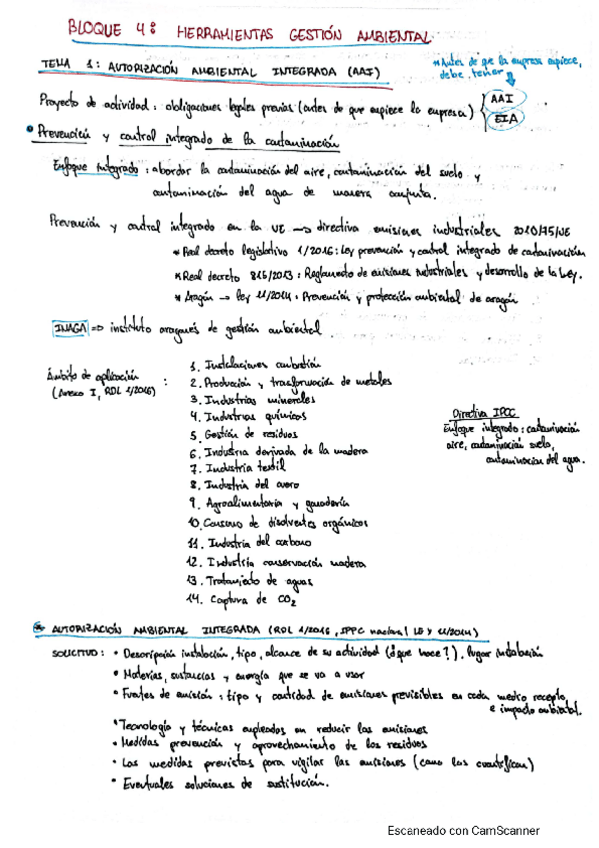 BLOQUE 4: HERRAMIENTAS GESTIÓN AMBIENTAL
TEMA 1: AUTORIZACIÓN AMBIENTAL INTEGRADA (AAI)
*Antes de que la empresa empiece,
debe tener
Proyecto de actividad: obligaciones legales previas (antes de que empiece la empresa)
AAI
EIA
• Prevención y control integrado de la contaminación
Enfoque integrado: abordar la contaminación del aire, contaminación del suelo y
contaminación del agua de manera conjunta.
Prevención y control integrado en la UE → directiva emisiones industriales 2010/75/UE
* Real decreto legislativo 1/2016: Ley prevención y control integrado de contaminación
* Real decreto 815/2013: Reglamento de emisiones industriales y desarrollo de la Ley.
* Aragón → ley 11/2014: Prevención y protección ambiental de aragón
INAGA => instituto aragonés de gestión ambiental
Ámbito de aplicación
(Anexo I, RDL 1/2016) :
1. Instalaciones combustión
2. Producción y trasformación de metales
3. Industrias minerales
4. Industrias químicas
5. Gestión de residuos
6. Industria derivada de la madera
7. Industria textil
8. Industria del cuero
9. Agroalimentaria y ganadería
10. Consumo de disolventes orgánicos
11. Industria del carbono
12. Industria conservación madera
13. Tratamiento de aguas
14. Captura de CO2
Directiva IPCC
Enfoque integrado: contaminación
aire, contaminación suelo,
contaminación del agua.
* AUTORIZACIÓN AMBIENTAL INTEGRADA (RDL 1/2016, IPPC nacional LEY 11/2014)
SOLICITUD: • Descripción instalación, tipo, alcance de su actividad (¿que hace?). Lugar instalación
• Materias, sustancias y energía que se va a usar
• Fuentes de emisión: tipo y cantidad de emisiones previsibles en cada medio receptor,
e impacto ambiental.
• Tecnología y técnicas empleadas en reducir las emisiones
• Medidas prevención y aprovechamiento de los residuos
• Las medidas previstas para vigilar las emisiones (como las cuantifican)
• Eventuales soluciones de sustitución.
Escaneado con CamScanner